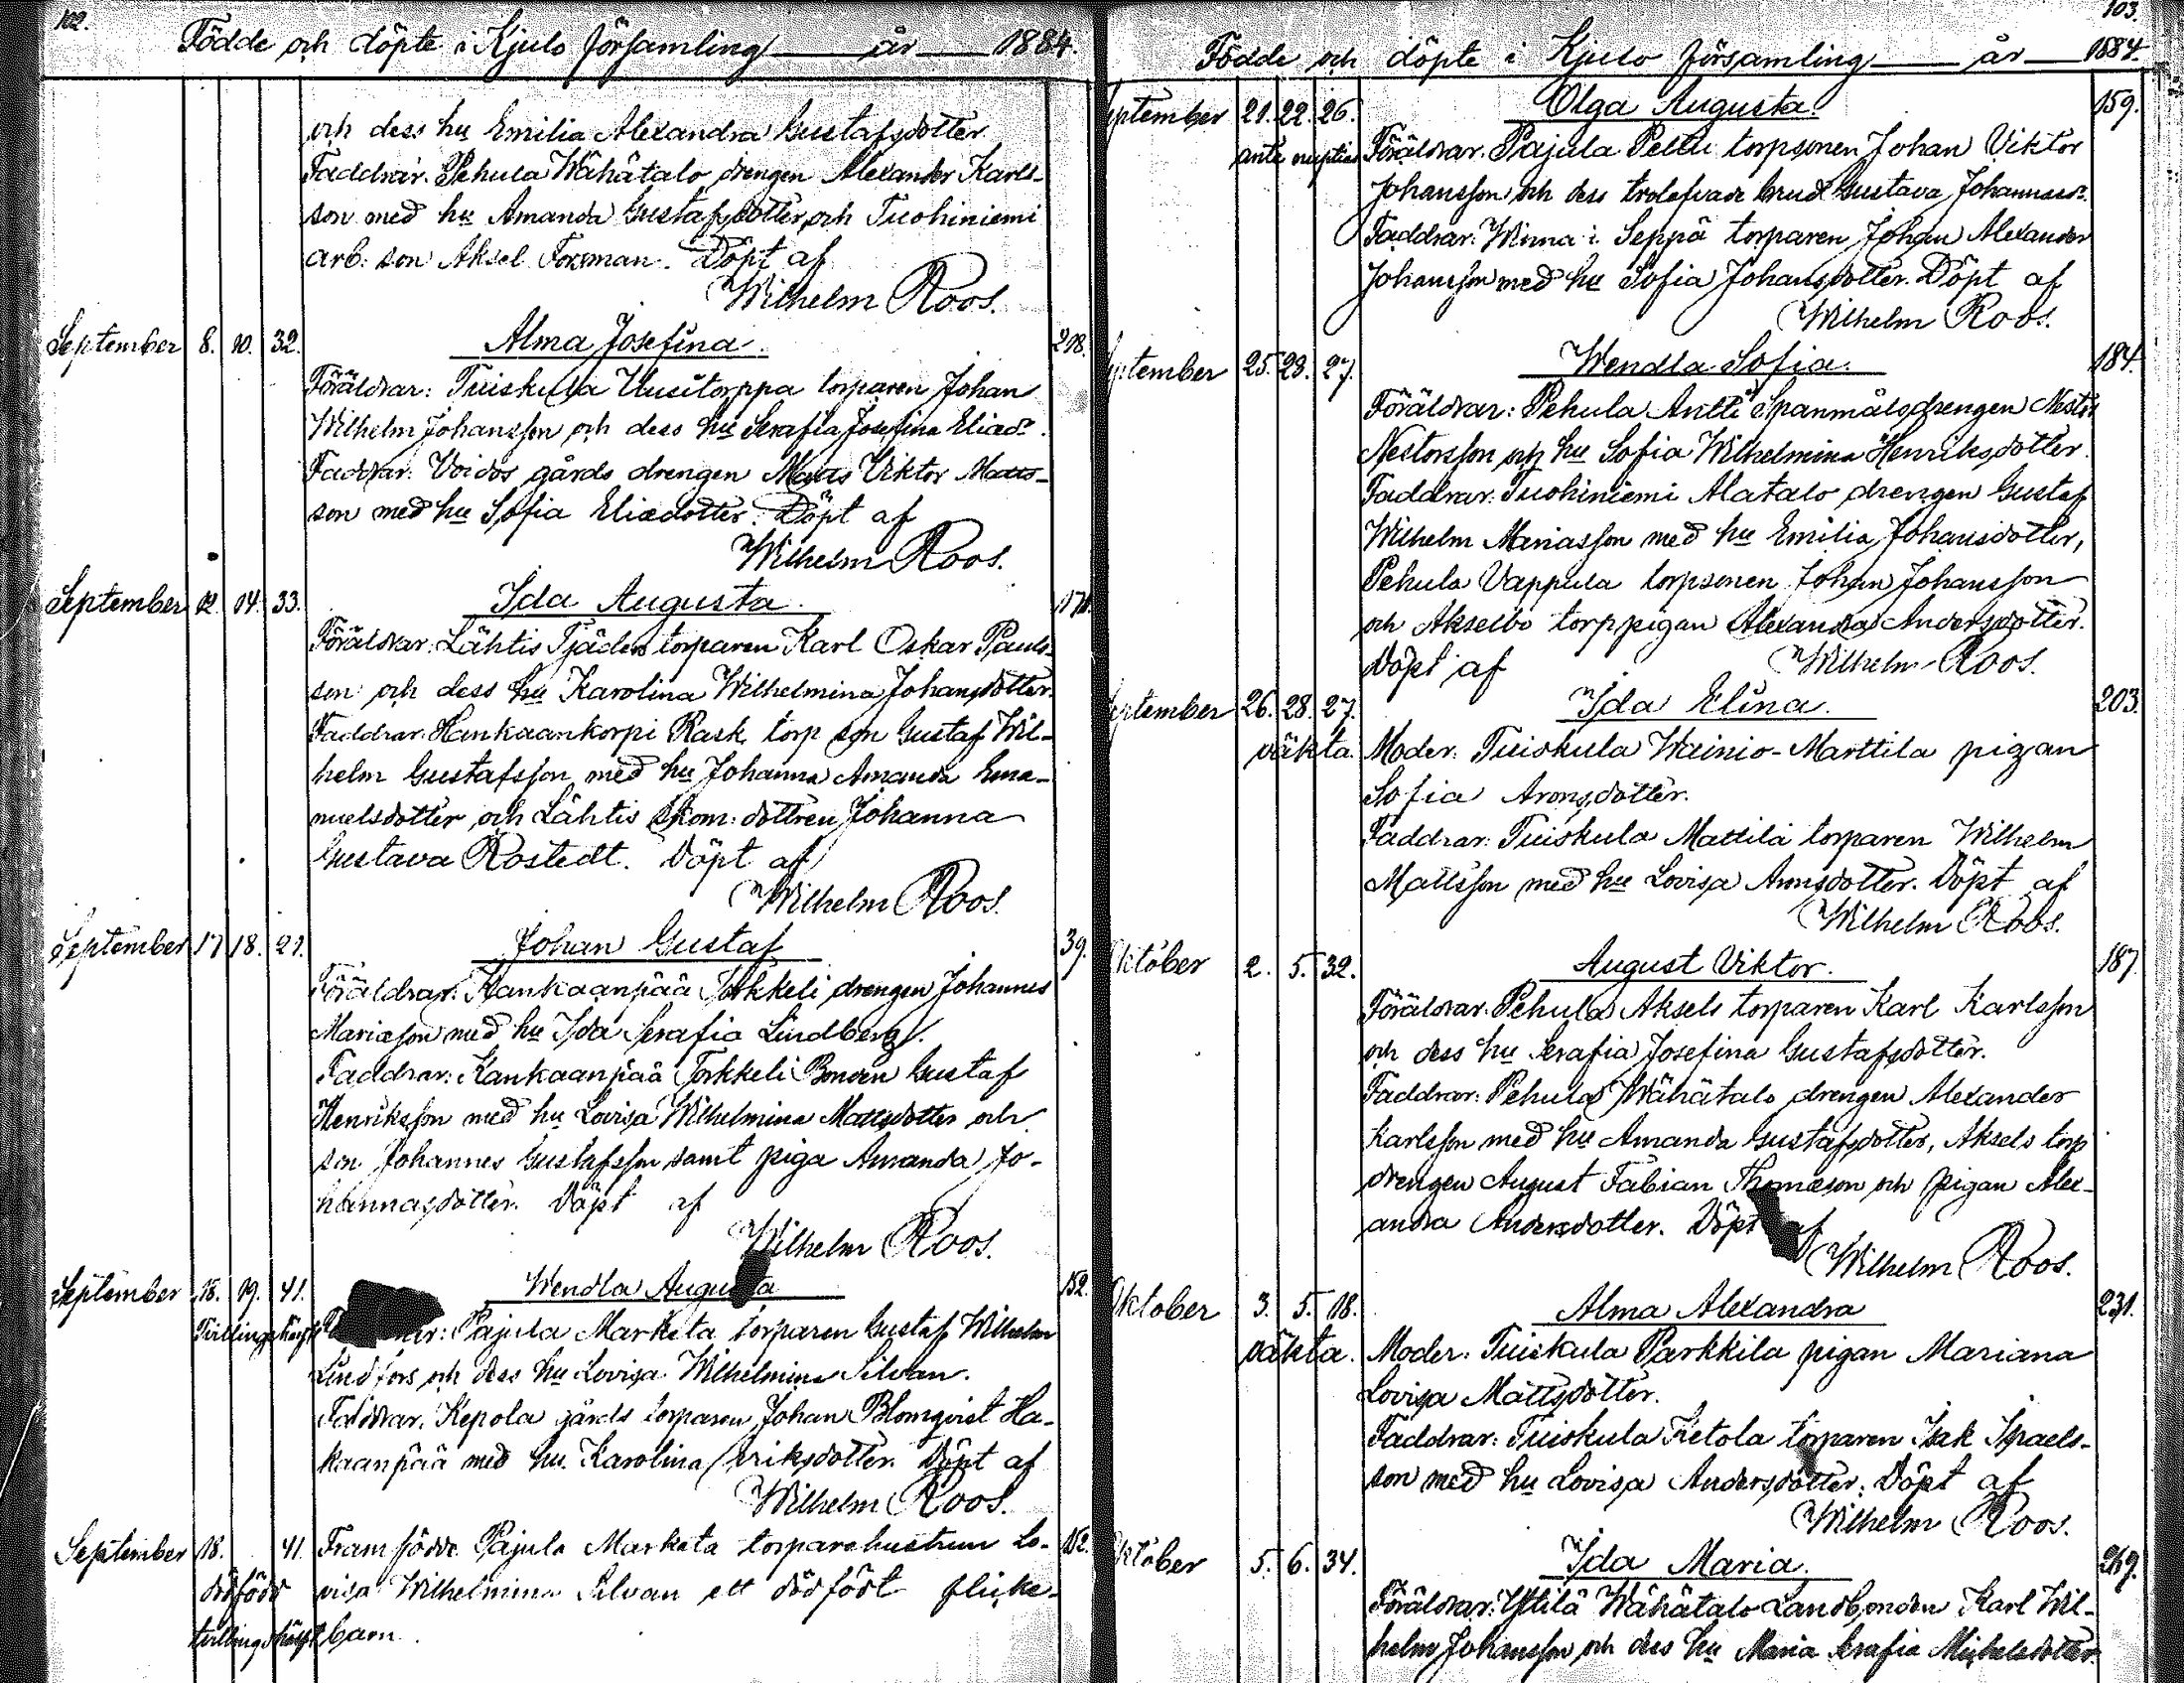 102.
Födde och döpte i Kjulo församling — år — 1884.
och dess hu Emilia Alexandra Gustafsdotter.
Faddrar: Pehula Wähätalo drengen Alexander Karls-
son med hu Amanda Gustafsdotter och Tuohiniemi
arb: son Aksel Forsman. Döpt af
Wilhelm Roos.
September 8. 10. 32. Alma Josefina. 218.
Föräldrar: Tuiskula Uusitorppa torparen Johan
Wilhelm Johansson och dess hu Serafia Josefina Eliædr.
Faddrar: Voidos gårds drengen Matts Viktor Matts-
son med hu Sofia Eliædotter. Döpt af
Wilhelm Roos.
September 12. 14. 33. Ida Augusta. 171.
Föräldrar: Lähtis Tjäder torparen Karl Oskar Pauls-
son och dess hu Karolina Wilhelmina Johansdotter.
Faddrar: Hankaankorpi Rask torp son Gustaf Wil-
helm Gustafsson med hu Johanna Amanda Ema-
nuelsdotter och Lähtis skom: dottren Johanna
Gustava Rostedt. Döpt af
Wilhelm Roos.
September 17. 18. 21. Johan Gustaf 39.
Föräldrar: Kankaanpää Torkkeli drengen Johannes
Mariæson med hu Ida Serafia Lindberg.
Faddrar: Kankaanpää Torkkeli Bonden Gustaf
Henriksson med hu Lovisa Wilhelmina Mattsdotter och
son Johannes Gustafsson samt piga Amanda Jo-
hannasdotter. Döpt af
Wilhelm Roos.
September 18. 19. 41. Wendla Augusta 152.
Tvillingshälft Pajula Marketa torparen Gustaf Wilhelm
Lindfors och dess hu Lovisa Wilhelmina Silvan.
Faddrar: Kepola gårds torparen Johan Blomqvist Ha-
kaanpää med hu. Karolina Eriksdotter. Döpt af
Wilhelm Roos.
September 18. 41. Framfödde Pajula Marketa torparehustrun Lo- 152.
dödfödd visa Wilhelmina Silvan ett dödfödt flicke-
tvillingshälft barn.
103.
Födde och döpte i Kjulo församling — år — 1884.
September 21. 22. 26. Olga Augusta. 159.
ante nuptias Föräldrar: Pajula Pelttu torpsonen Johan Viktor
Johansson och dess trolofvade brud Gustava Johannasdr.
Faddrar: Winna i Seppä torparen Johan Alexander
Johansson med hu Sofia Johansdotter. Döpt af
Wilhelm Roos.
September 25. 28. 27. Wendla Sofia. 184.
Föräldrar: Pehula Antti Spanmålsdrengen Nestor
Nestorsson och hu Sofia Wilhelmina Henriksdotter.
Faddrar: Tuohiniemi Alatalo drengen Gustaf
Wilhelm Mariasson med hu Emilia Johansdotter,
Pehula Vappula torpsonen Johan Johansson
och Akselbo torppigan Alexandra Andersdotter.
Döpt af Wilhelm Roos.
September 26. 28. 27. Ida Elina. 203.
oäkta. Moder: Tuiskula Wainio-Marttila pigan
Sofia Aronsdotter.
Faddrar: Tuiskula Mattila torparen Wilhelm
Mattsson med hu Lovisa Aronsdotter. Döpt af
Wilhelm Roos.
Oktober 2. 5. 32. August Viktor. 187.
Föräldrar: Pehula Aksels torparen Karl Karlsson
och dess hu Serafia Josefina Gustafsdotter.
Faddrar: Pehula Wähätalo drengen Alexander
Karlsson med hu Amanda Gustafsdotter, Aksels torp
drengen August Fabian Thomæson och pigan Alex-
andra Andersdotter. Döpt af
Wilhelm Roos.
Oktober 3. 5. 18. Alma Alexandra 231.
oäkta. Moder: Tuiskula Parkkila pigan Mariana
Lovisa Mattsdotter.
Faddrar: Tuiskula Ketola torparen Isak Israels-
son med hu Lovisa Andersdotter. Döpt af
Wilhelm Roos.
Oktober 5. 6. 34. Ida Maria. 269.
Föräldrar: Yttilä Wähätalo Landbonden Karl Wil-
helm Johansson och dess hu Maria Serafia Michelsdotter.